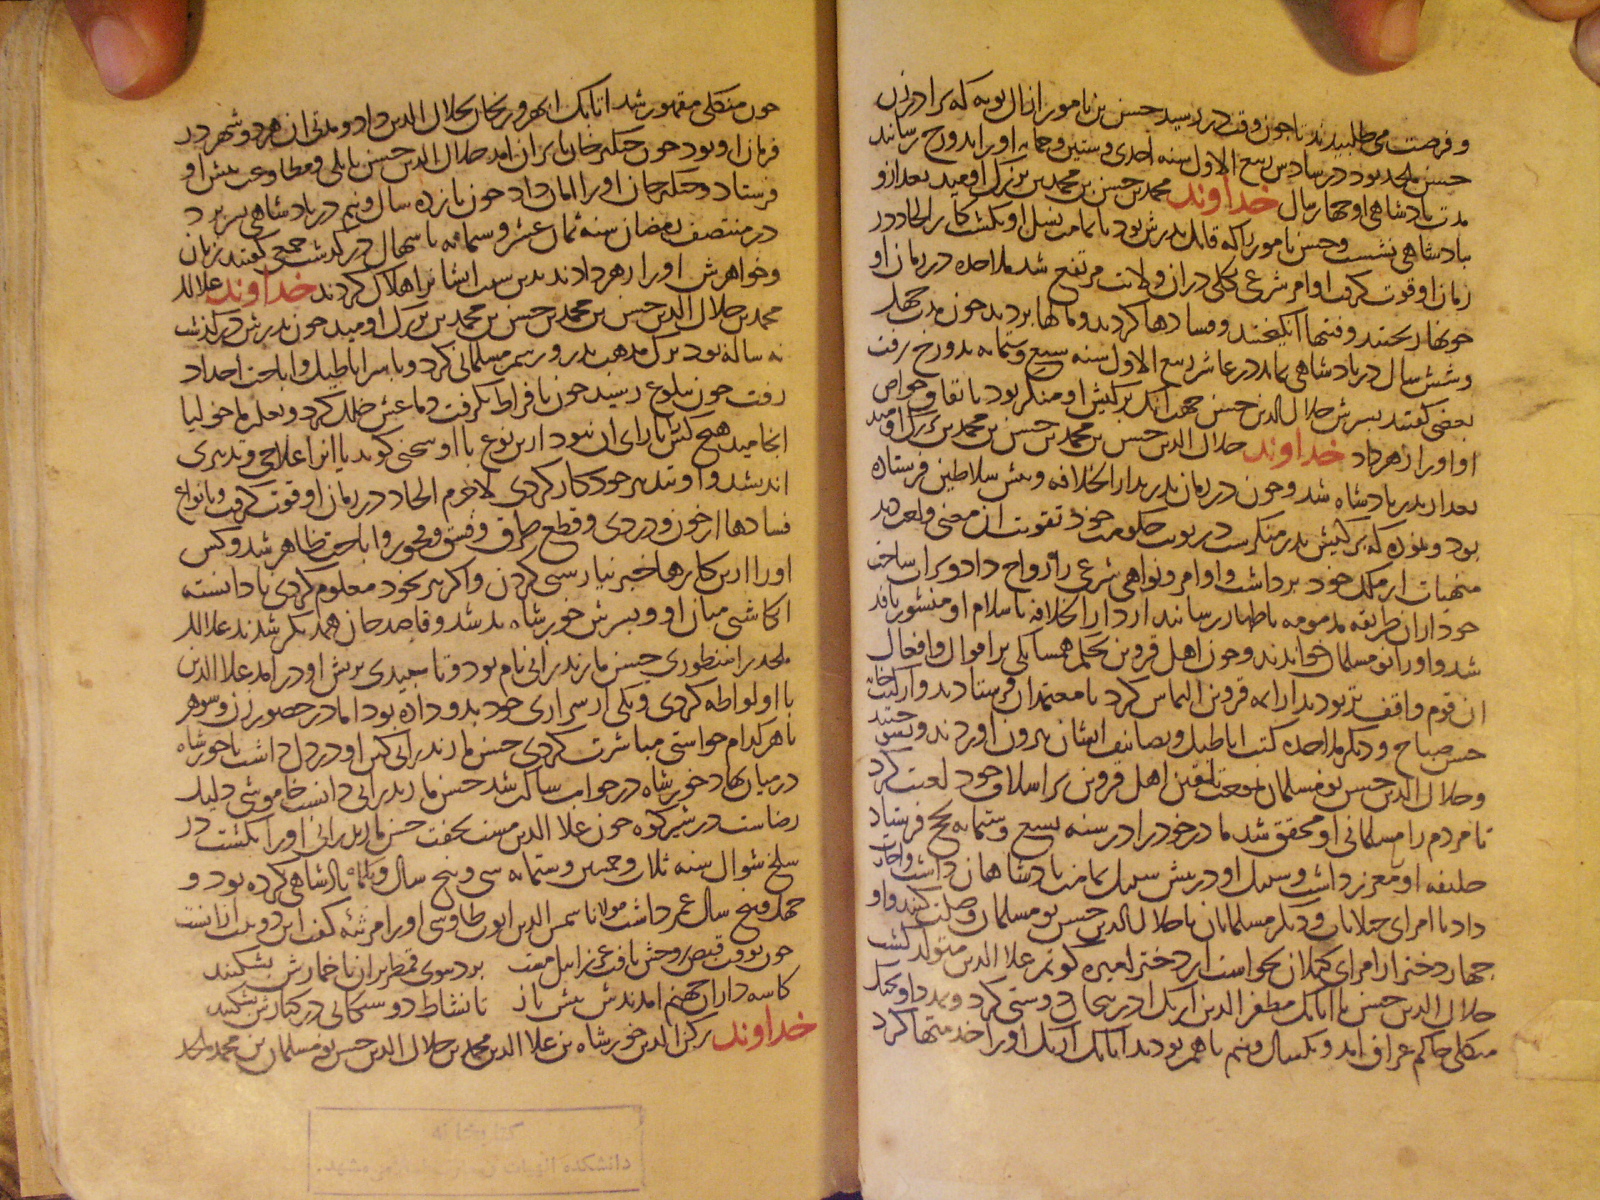 و فرصت می طلبیدند تا چون وقت در رسید حسن بن نامور از آل بویه که برادر زن
حسن ملحد بود در سادس ربیع الاول سنه احدی و ستین و خمسمایه او را بدوزخ رسانید
مدت پادشاهی او چهار سال خداوند محمد بن حسن بن محمد بن بزرگ اومید بعد ازو
بپادشاهی نشست و حسن نامور را که قاتل پدرش بود با تمامت نسل او بکشت کار الحاد در
زمان او قوت گرفت اوامر شرعی بکلی در ان ولایت مرتفع شد ملاحده در زمان او
خونها ریختند و فتنها انگیختند و فسادها کردند و مالها بردند چون مدت چهل
و شش سال در پادشاهی بماند در عاشر ربیع الاول سنه سبع و ستمایه بدوزخ رفت
بعضی گفتند پسرش جلال الدین حسن جهت آنک بر کیش او منکر بود باتفاق خواص
او او را زهر داد خداوند جلال الدین حسن بن محمد بن حسن بن محمد بن بزرگ اومید
بعد از پدر پادشاه شد و چون در زمان پدر بدار الخلافه و پیش سلاطین فرستاده
بود و نموده که بر کیش پدر منکرست در نوبت حکومت خود تقویت آن معنی واجب دید
منهیات از ملک خود برداشت و اوامر و نواهی شرعی را رواج داد و بران ساخت
خود از ان طریقه مذمومه باظهار رسانید از دار الخلافه باسلام او منشور نافذ
شد و او را نو مسلمان خواندند و چون اهل قزوین بحکم همسایگی بر اقوال و افعال
ان قوم واقف تر بودند از ایمه قزوین التماس کرد تا معتمدان فرستادند و از کتابخانه
حسن صباح و دیگر ملاحده کتب اباطیل و تصانیف ایشان بیرون اوردند و بسوختند
و جلال الدین حسن نو مسلمان بموجب تلقین اهل قزوین بر اسلاف خود لعنت کرد
تا مردم را مسلمانی او محقق شد مادر خود را در سنه تسع و ستمایه بحج فرستاد
خلیفه او معزز داشت و سبیل او در پیش سبیل تمامت پادشاهان داشت و اجازت
داد تا امرای جیلانات و دیگر مسلمانان با جلال الدین حسن نو مسلمان وصلت کنند و او
چهار دختر از امرای گیلان بخواست از دختر امیره کوتم علا الدین متولد گشت
جلال الدین حسن با اتابک مظفر الدین ازبک اذربیجان دوستی کرد و بمدد او بجنگ
منکلی حاکم عراق امد و یکسال و نیم باهم بودند اتابک ازبک او را خدمتها کرد
چون منکلی مقهور شد اتابک ابهر و زنجان بجلال الدین داد و مدتی ان هر دو شهر در
فرمان او بود چون چنگیز خان بایران امد جلال الدین حسن بایلی و مطاوعت پیش او
فرستاد و چنگیز خان او را امان داد چون یازده سال و نیم در پادشاهی بسر برد
در منتصف رمضان سنه ثمان عشر و ستمایه باسهال در گذشت جمعی گفتند زنان
و خواهرش او را زهر دادند بدین سبب ایشانرا هلاک کردند خداوند علا الد
محمد بن جلال الدین حسن بن محمد بن حسن بن محمد بن بزرگ اومید چون پدرش در گذشت
نه ساله بود ترک مذهب پدر و رسم مسلمانی کرد و با سر اباطیل و اباحت اجداد
رفت چون ببلوغ رسید خون بافراط بگرفت دماغش خلل کرد و بعلت مالیخولیا
انجامید هیچ کس یارای آن نبود از ین نوع با او سخنی گوید یا انرا علاجی و تدبیری
اندیشد و او بتدبیر خود کار کردی لاجرم الحاد در زمان او قوت گرفت و بانواع
فسادها از خون و دزدی و قطع طریق و فسق و فجور و اباحت ظاهر شد و کس
او را از ین کارها خبر نیارستی کردن و اگر بخود معلوم کردی نا دانسته
انگاشتی میان او و پسرش خورشاه بد شد و قاصد جان همدیگر شدند علا الد
ملحد را منظوری حسن مازندرانی نام بود و تا سپیدی بریش او در امد علا الدین
با او لواطه کردی و یکی از سراری خود بدو داده بود اما در حضور زن و شوهر
با هر کدام خواستی مباشرت کردی حسن مازندرانی کین او در دل داشت با خورشاه
در میان نهاد خورشاه در جواب ساکت شد حسن مازندرانی دانست خاموشی دلیل
رضاست در شیرکوه چون علا الدین مست بخفت حسن مازندرانی او را بکشت در
سلخ شوال سنه ثلاث و خمسین و ستمایه سی و پنج سال و یکماه پادشاهی کرده بود و
چهل و پنج سال عمر داشت مولانا شمس الدین ایوب طاوسی او را مرثیه گفت این دو بیت از انست
چون بوقت قبض روحش یافت عزرایل مست برد سوی قمطریران تا خمارش بشکنید
کاسه داران جهنم امدندش پیش باز تا نشاط دوستکانی در کنارش بشکنید
خداوند رکن الدین خورشاه بن علا الدین محمد بن جلال الدین حسن نو مسلمان بن محمد ملحد
کتابخانه
دانشکده الهیات و معارف اسلامی مشهد